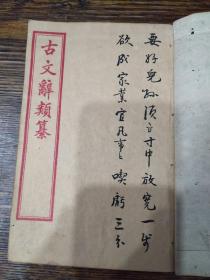 要好兒孫須方寸中放寬一步
欲成家業宜凡事上喫虧三分
古文辭類纂